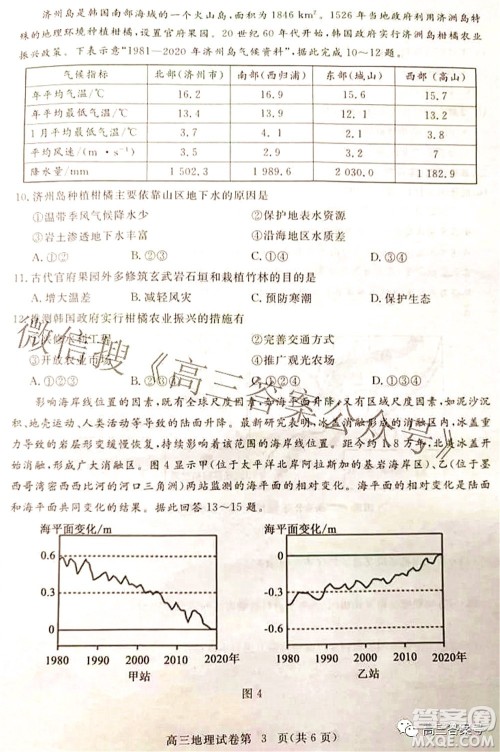 济州岛是韩国南部海域的一个火山岛,面积为 1846 km²。1526 年当地政府利用济洲岛特
殊的地理环境种植柑橘,设置官府果园。20 世纪 60 年代开始,韩国政府实行济洲岛柑橘农业
振兴政策。下表示意"1981—2020 年济州岛气候资料",据此完成 10～12 题。
气候指标 北部(济州市) 南部(西归浦) 东部(城山) 西部(高山)
年平均气温/℃ 16.2 16.9 15.6 15.7
年平均最低气温/℃ 13.4 13.9 12.1 13.2
1 月平均最低气温/℃ 3.7 4.1 2.1 3.8
年平均风速/(m·s⁻¹) 3.5 2.9 3.2 7
降水量/mm 1 502.3 1 989.6 2 030.0 1 182.9
10. 济州岛种植柑橘主要依靠山区地下水的原因是
①温带季风气候降水少 ②保护地表水资源
③岩土渗透地下水丰富 ④沿海地区水质差
A. ①③ B. ②③ C. ③④ D. ①④
11. 古代官府果园外多修筑玄武岩石垣和栽植竹林的目的是
A. 增大温差 B. 减轻风灾 C. 预防寒潮 D. 保护生态
12. 推测韩国政府实行柑橘农业振兴的措施有
水利工程 ②完善交通方式
③开放农业市场 ④推广观光农场
A. ①②③ B. ①②④ C. ①③④ D. ②③④
影响海岸线位置的因素,既有全球尺度因素,
海平面升降,又有区域尺度因素,如泥沙沉
积、地壳运动、人类活动等导致的陆面升降。最新研究表明,冰盖消融形成的
冰盖重
力导致的岩层形变缓慢恢复,持续影响着该范围的海岸线位置。距今约1.8万年,北
冰盖开
始消融,形成广大消融区。图 4 显示甲(位于太平洋北岸阿拉斯加的基岩海岸区)、乙(位于墨
西哥湾密西西比河的河口三角洲)两站监测的海平面的相对变化。海平面相对变化是陆面
和海平面共同变化的结果。据此回答 13～15 题。
海平面变化/m
0.6
0.3
0
1980 1990 2000 2010 2020年
甲站
海平面变化/m
0
-0.3
-0.6
1980 1990 2000 2010 2020年
乙站
图 4
高三地理试卷第 3 页(共 6 页)
微信搜《高三答案公众号》
高三答案号
答案圈